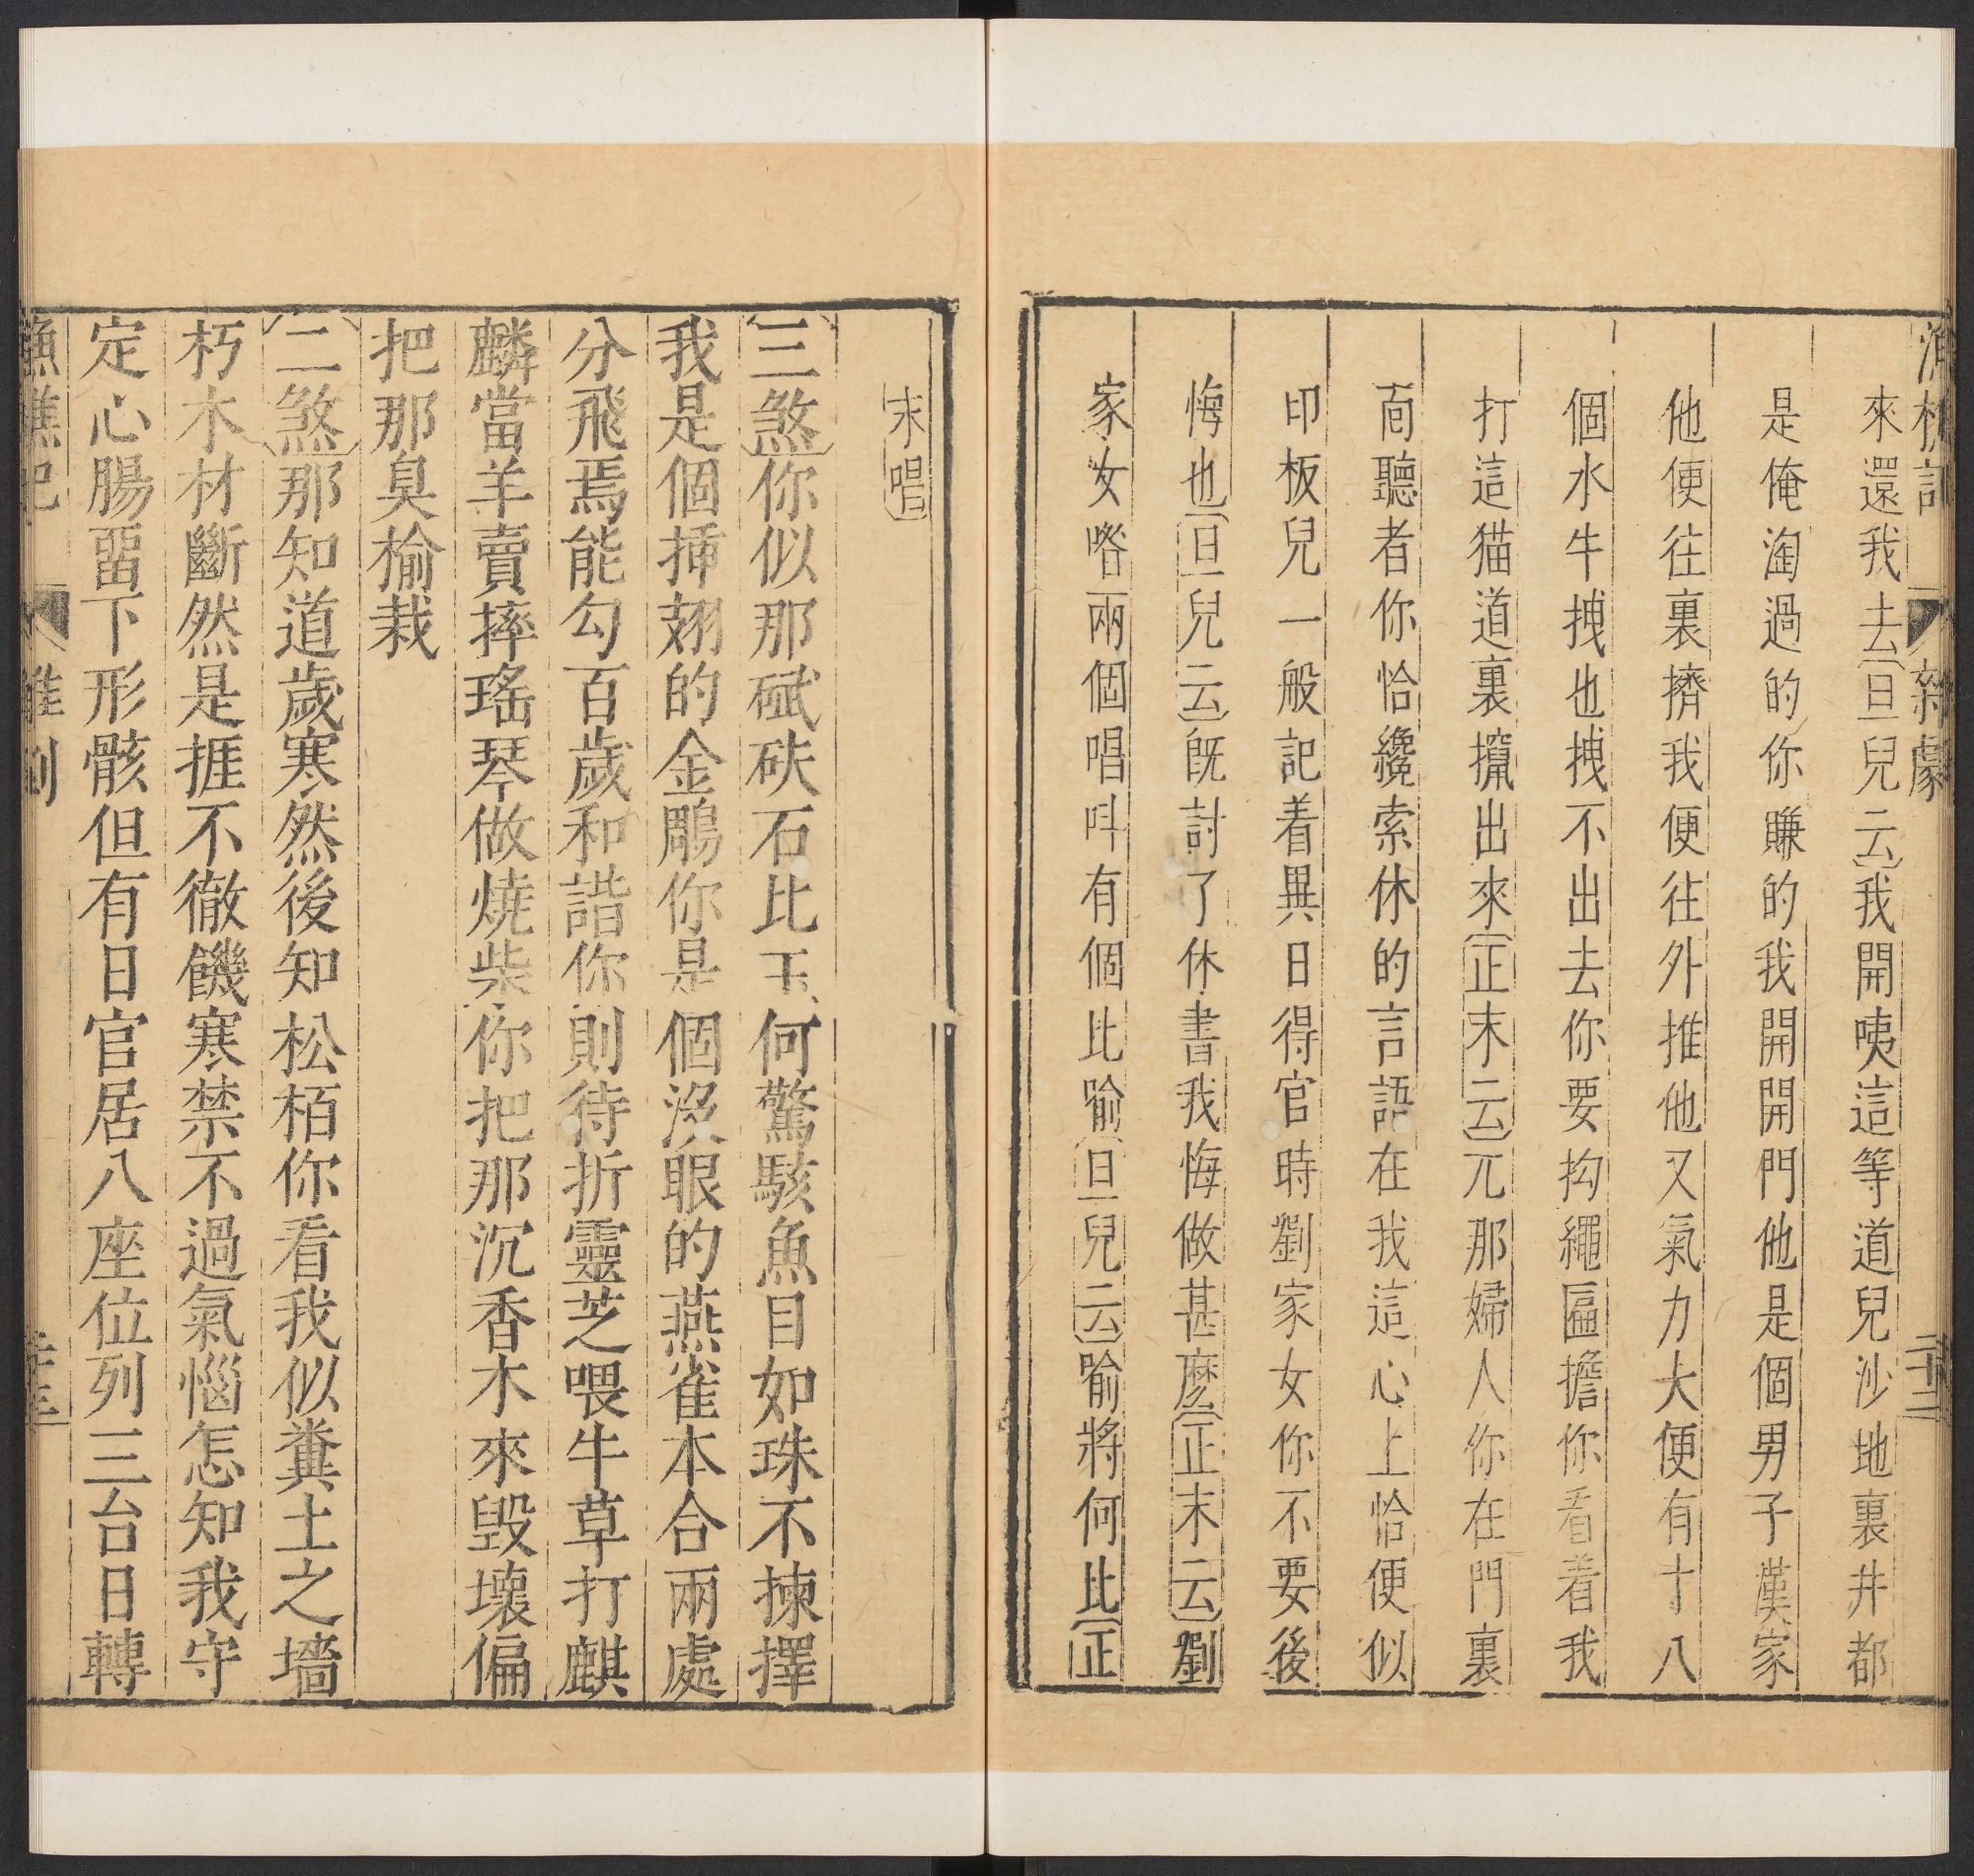 漁樵記 新劇 二十二
來還我去旦兒云我開咦這等道兒沙地裏井都
是俺淘過的你賺的我開開門他是個男子漢家
他便往裏擠我便往外推他又氣力大便有十八
個水牛拽也拽不出去你要抅繩匾擔你看着我
打這猫道裏攛出來正末云兀那婦人你在門裏
靣聽者你恰纔索休的言語在我這心上恰便似
印板兒一般記着異日得官時劉家女你不要後
悔也旦兒云旣討了休書我悔做甚麽正末云劉
家女喒兩個唱呌有個比喻旦兒云喻將何比正
末唱
三煞你似那碔砆石比玉何驚駭魚目如珠不揀擇
我是個揷翅的金鵰你是個沒眼的燕雀本合兩處
分飛焉能勾百歲和諧你則待折靈芝喂牛草打麒
麟當羊賣摔瑤琴做燒柴你把那沉香木來毀壞偏
把那臭榆栽
二煞那知道歲寒然後知松栢你看我似糞土之墻
朽木材斷然是捱不徹饑寒禁不過氣惱怎知我守
定心腸畱下形骸但有日官居八座位列三台日轉
漁樵記 雜劇